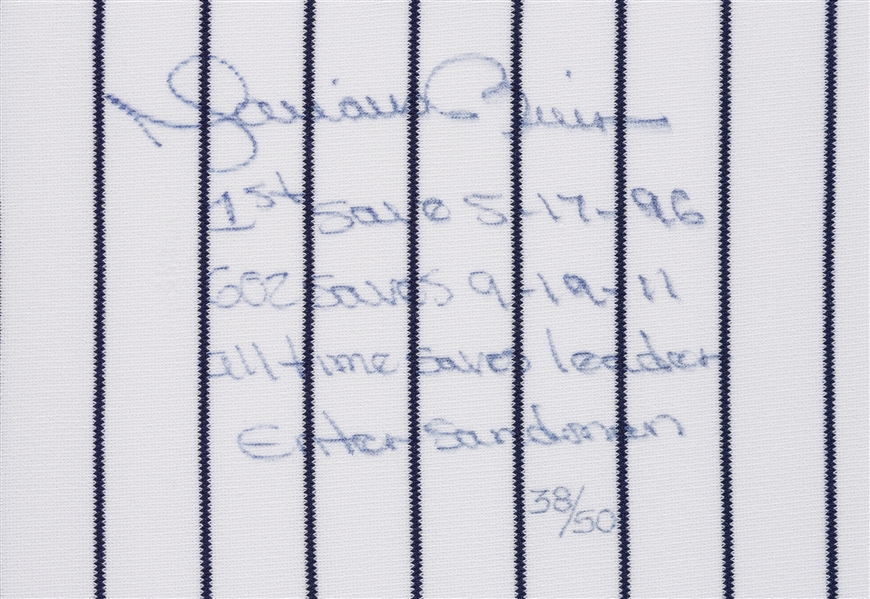 Mariano Rivera
1st Save 5-17-96
602 Saves 9-19-11
all time saves leader
Enter Sandman
38/50